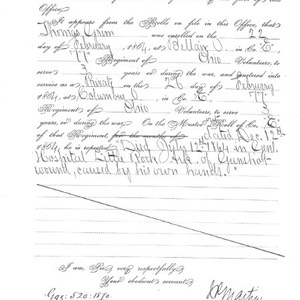 Office.
It appears from the Rolls on file in this Office, that
Thomas was enrolled on the 22
day of February, 1864, at Bellair O. in Co. E.
77" Regiment of Ohio Volunteers, to
serve 3 years or during the war, and mustered into
service as a Private on the 26 day of February
1864, at Columbus O. in Co. E. 77"
Regiment of Ohio Volunteers, to serve 3
years or during the war. On the Muster Roll of Co. E.
of that Regiment, for the months of dated Dec. 12th
1864, he is reported "Died July 12th 1864 in Genl.
Hospital Little Rock Ark. of Gunshot-
wound, caused by his own hands."
I am, Sir, very respectfully,
Your obedient servant,